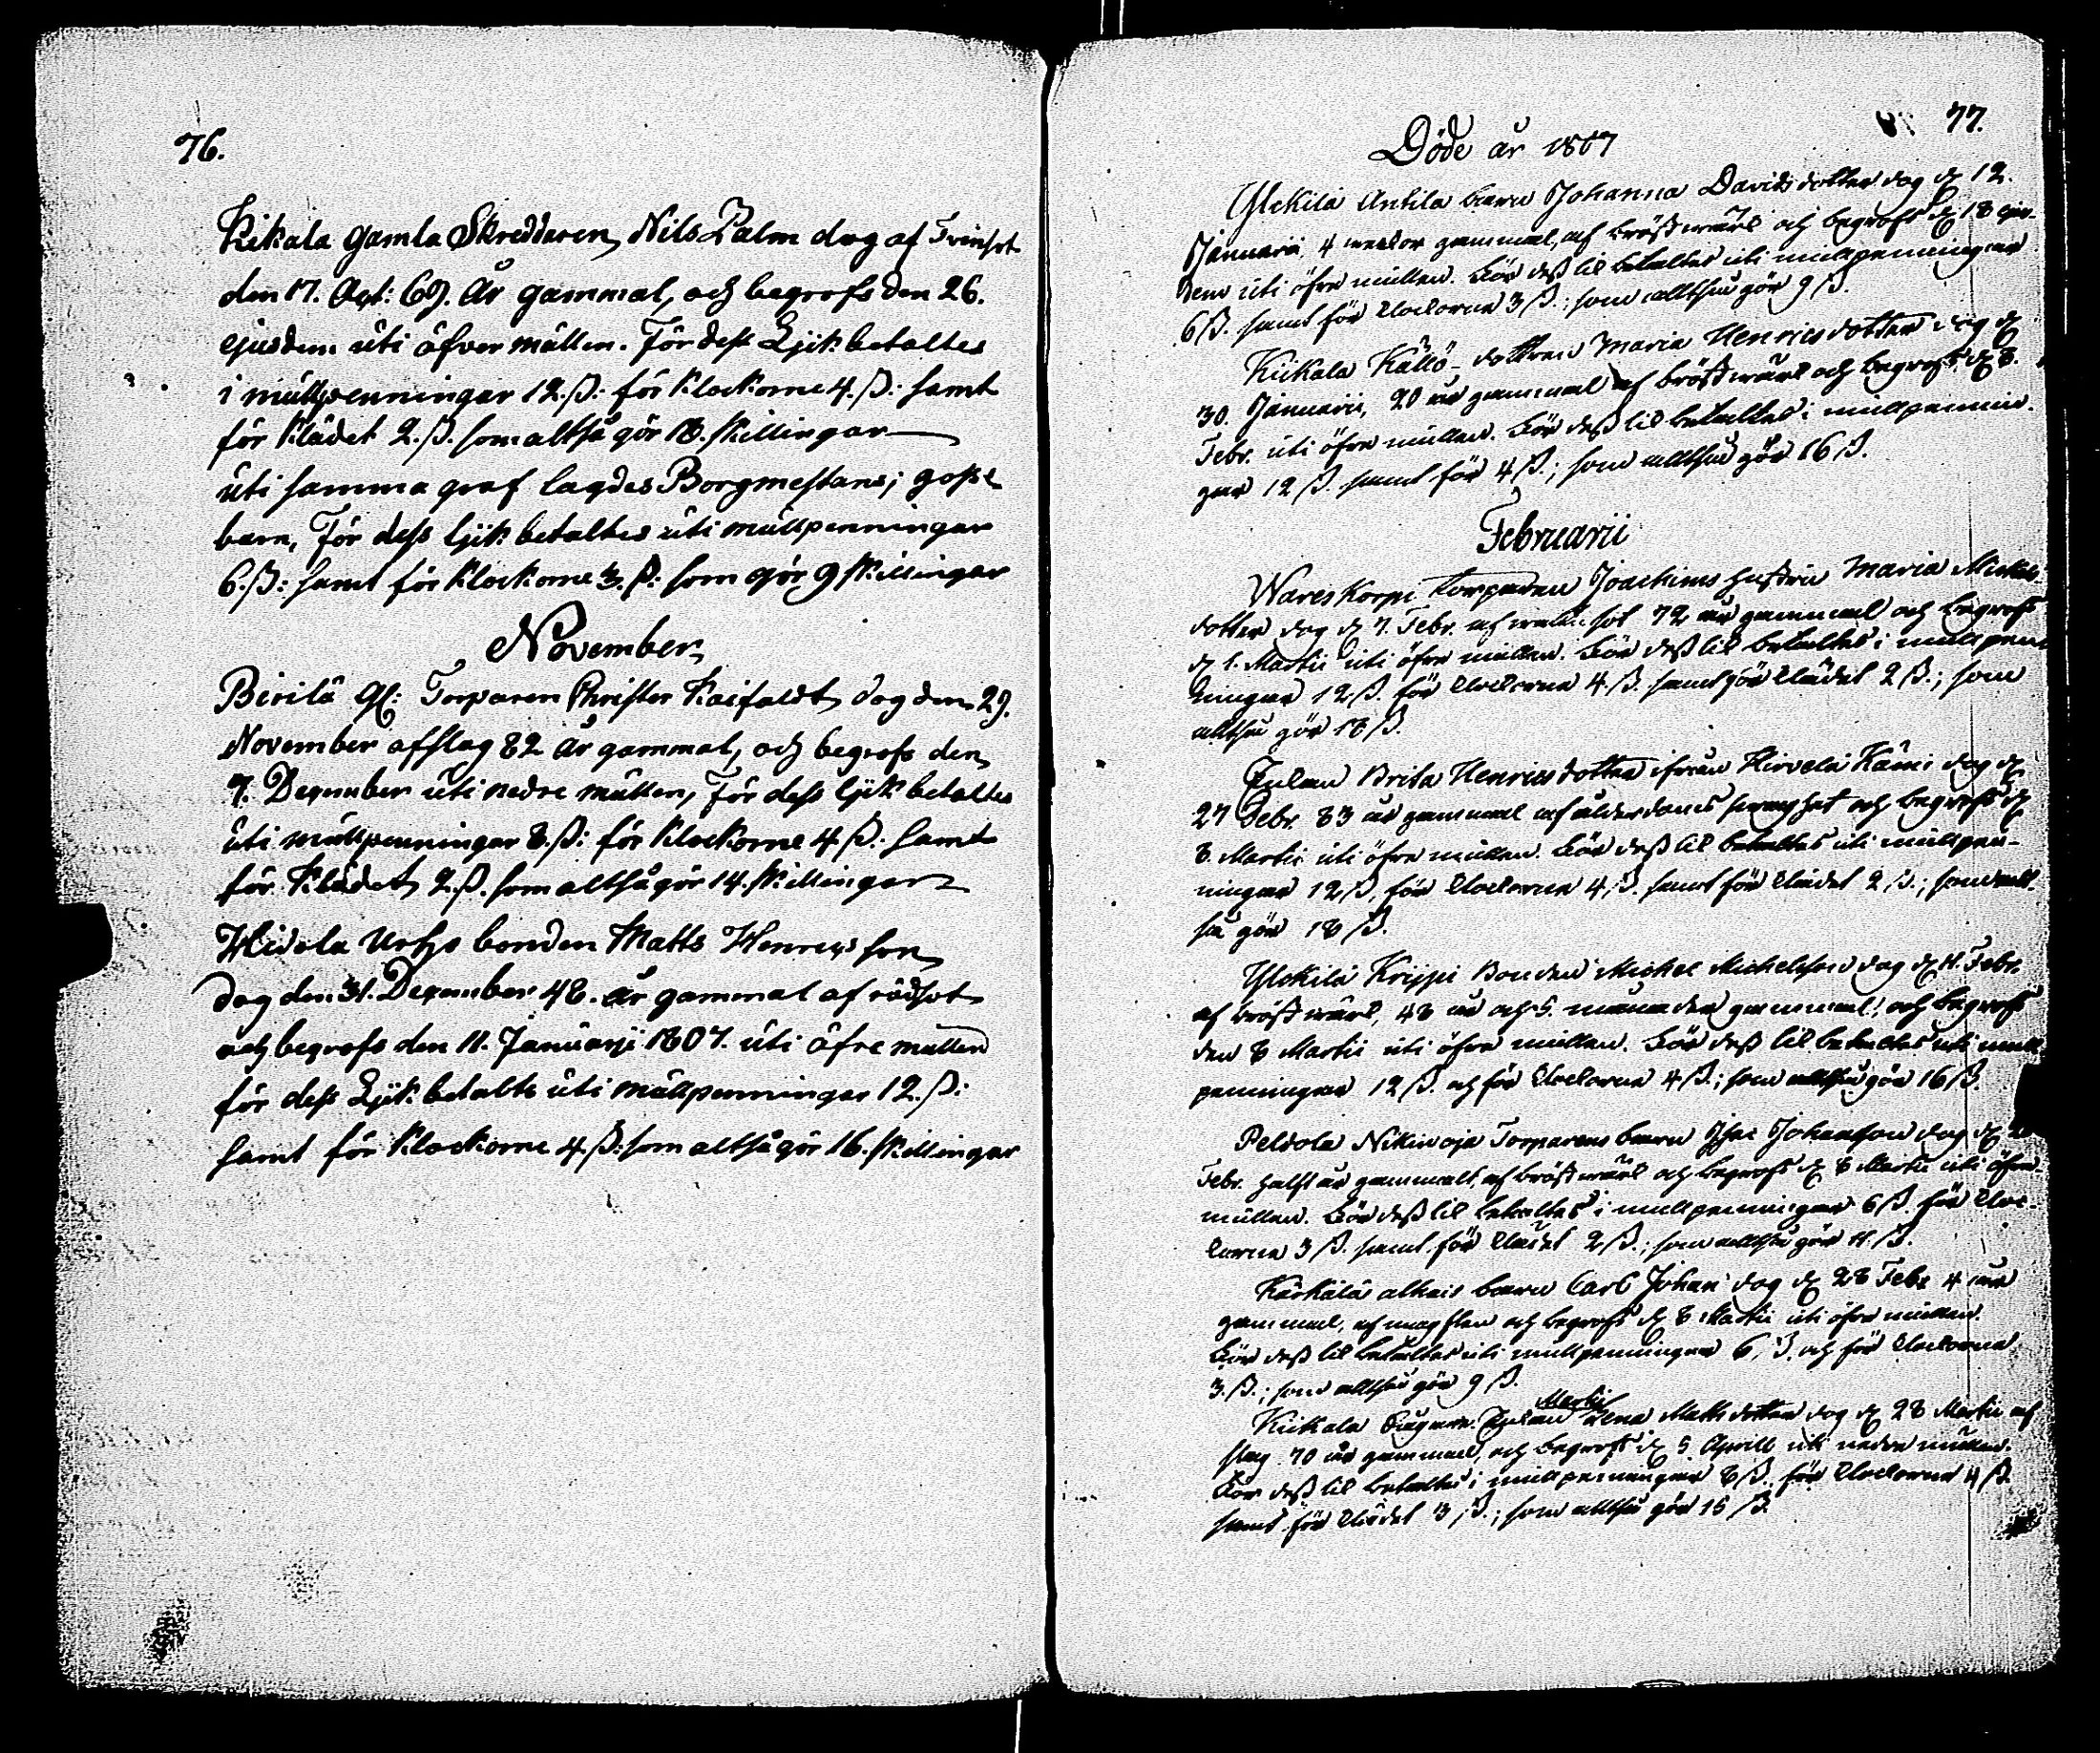 76.
Kikala gamla Skreddaren Nils Palm dog af Tvinsot
den 17. Oct: 69. År gammal, och begrofs den 26.
ejusdem uti öfver mullen. För dess Lijk betaltes
i mullpenningar 12. ß: för Klockorne 4. ß: samt
för Klädet 2. ß. som altså gör 18. skillingar
uti samma graf lagdes Borgmestans; gosse
barn, För dess lijk betaltes uti mullpenningar
6. ß: samt för Klockorne 3. ß: som gör 9 skillingar
November
Birilä Torparen Christer Kaifaldt dog den 29.
November af slag 82 År gammal, och begrofs den
7. December uti nedre mullen, För dess lijk betaltes
uti mullpenningar 8. ß: för Klockorne 4 ß: samt
för Klädet 2. ß. som altså gör 14. skillingar
bonden Matts Henricsson
dog den 31. December 48. År gammal af rödsot
och begrofs den 11. Januarii 1807. uti öfre mullen
för dess Lijk betalts uti mullpenningar 12. ß:
samt för Klockorne 4. ß: som altså gör 16. skillingar
77.
Döde år 1807
Ylekilä Antila barn Johanna Davidsdotter dog d. 12.
Januarii, 4 veckor gammal, af bröstwärk och begrofs d. 18 ejus-
dem uti öfre mullen. För dess lik betaltes uti mullpenningar
6 ß. samt för klockorna 3 ß.; som alltså gör 9 ß.
Kickala Källö-dottren Maria Henricsdotter dog d.
30. Januarii, 20 år gammal af bröstwärk och begrofs d. 8.
Febr. uti öfre mullen. För dess lik betaltes i mullpennin-
gar 12 ß. samt för 4 ß.; som alltså gör 16 ß.
Februarii
Wareskorpi Torparen Joachims hustru Maria Mickels-
dotter dog d. 7. Febr. af sot 72 år gammal och begrofs
d. 1. Martii uti öfre mullen. För dess lik betaltes i mullpen-
ningar 12 ß. för klockorna 4 ß. samt för klädet 2 ß.; som
alltså gör 18 ß.
Enkan Brita Henricsdotter ifrån Hirvelä Kåni dog d.
27 Febr. 83 år gammal af ålderdoms svaghet och begrofs d.
8. Martii uti öfre mullen. För dess lik betaltes uti mullpen-
ningar 12 ß, för klockorna 4 ß. samt för klädet 2 ß.; som allt-
så gör 18 ß.
Ylekilä Krijpi Bonden Mickel Michelsson dog d. 11. Febr.
af bröstwärk, 48 år och 5. månader gammal, och begrofs
den 8 Martii uti öfre mullen. För dess lik betaltes uti mull-
penningar 12 ß. och för klockorna 4 ß.; som alltså gör 16 ß.
Peldola Nikinoja Torparens barn Johansson dog d.
Febr. halft år gammalt, af bröstwärk och begrofs d. 8 Martii uti öfre
mullen. För dess lik betaltes i mullpenningar 6 ß. för kloc-
korna 3 ß. samt för klädet 2 ß.; som alltså gör 11 ß.
Kärkälä barn Carl Johan dog d. 28 Febr 4 år
gammal, af och begrofs d. 8 Martii uti öfre mullen.
För dess lik betaltes uti mullpenningar 6 ß. och för klockorna
3. ß.; som alltså gör 9 ß.
Martii
Kickala Enkan Lena Matts dotter dog d. 28 Martii af
slag 70 år gammal, och begrofs d. 5 Aprill uti nedre mullen.
För dess lik betaltes i mullpenningar 8 ß. för klockorna 4 ß.
samt för klädet 3 ß.; som alltså gör 15 ß.